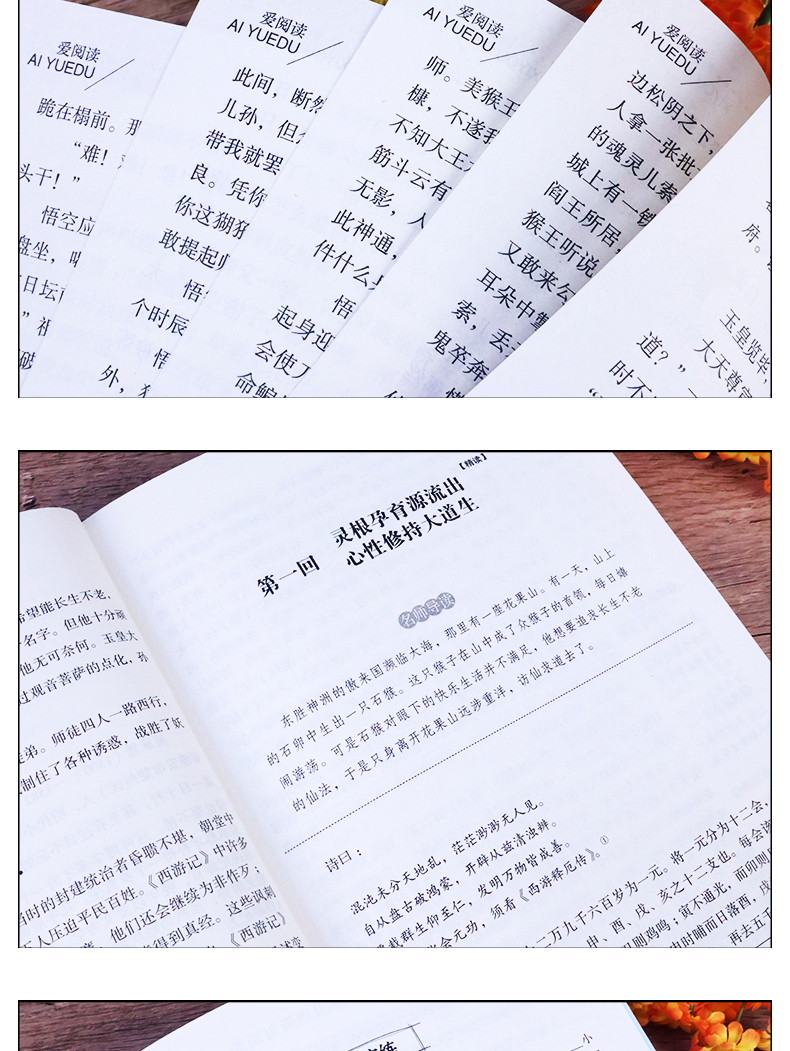 爱阅读
AI YUEDU
跪在榻前。那
“难！
头干！”
悟空应
盘坐，
日坛
破
爱阅读
AI YUEDU
此间，断然
儿孙，但
带我就罢
良。凭你
你这猢狲
敢提起
悟
个时辰
悟
外，
爱阅读
AI YUEDU
师。美猴王
槺，不遂我
不知大王
筋斗云有
无影，人
此神通，
件什么
悟
起身迎
会使刀
命鳊
爱阅读
AI YUEDU
边松阴之下，
人拿一张批
的魂灵儿索
城上有一铁
阎王所居，
猴王听说
又敢来公
耳朵中掣
索，丢
鬼卒奔
府。
玉皇览毕，
大天尊宣
道？”一
时不
【精读】
第一回 灵根孕育源流出
心性修持大道生
名师导读
东胜神洲的傲来国濒临大海，那里有一座花果山。有一天，山上
的石卵中生出一只石猴。这只猴子在山中成了众猴子的首领，每日嬉
闹游荡。可是石猴对眼下的快乐生活并不满足，他想要追求长生不老
的仙法，于是只身离开花果山远涉重洋，访仙求道去了。
诗曰：
混沌未分天地乱，茫茫渺渺无人见。
自从盘古破鸿蒙，开辟从兹清浊辨。
覆载群生仰至仁，发明万物皆成善。
会元功，须看《西游释厄传》。①
二万九千六百岁为一元。将一元分为十二会，
申、酉、戌、亥之十二支也。每会该
则鸡鸣；寅不通光，而卯则
中时晡而日落西，戌
再去五千
希望能长生不老，
名字。但他十分顽
他无可奈何。玉皇大
过观音菩萨的点化，
徒弟。师徒四人一路西行，
制住了各种诱惑，战胜了妖
当时的封建统治者昏聩不堪，朝堂中
人压迫平民百姓。《西游记》中许多
他们还会继续为非作歹；
得到真经。这些讽刺
《西游记》
小